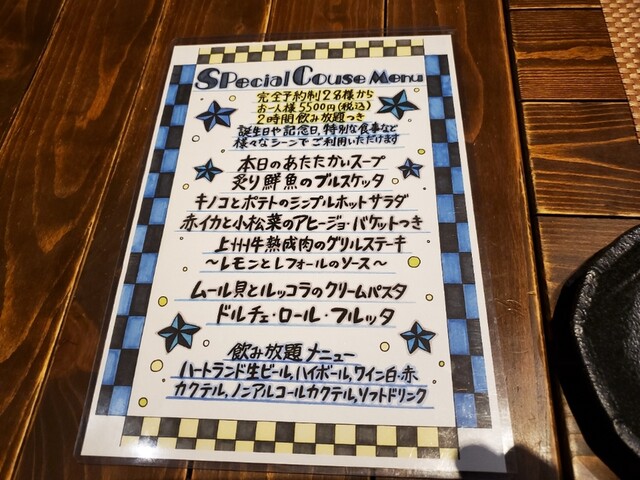 Special Couse Menu
完全予約制2名様から
お一人様5500円(税込)
2時間飲み放題つき
誕生日や記念日,特別な食事など
様々なシーンでご利用いただけます
本日のあたたかいスープ
炙り鮮魚のブルスケッタ
キノコとポテトのシンプルホットサラダ
赤イカと小松菜のアヒージョ・バケットつき
上州牛熟成肉のグリルステーキ
～レモンとレフォールのソース～
ムール貝とルッコラのクリームパスタ
ドルチェ・ロール・フルッタ
飲み放題メニュー
ハートランド生ビール,ハイボール,ワイン白・赤
カクテル,ノンアルコールカクテル,ソフトドリンク